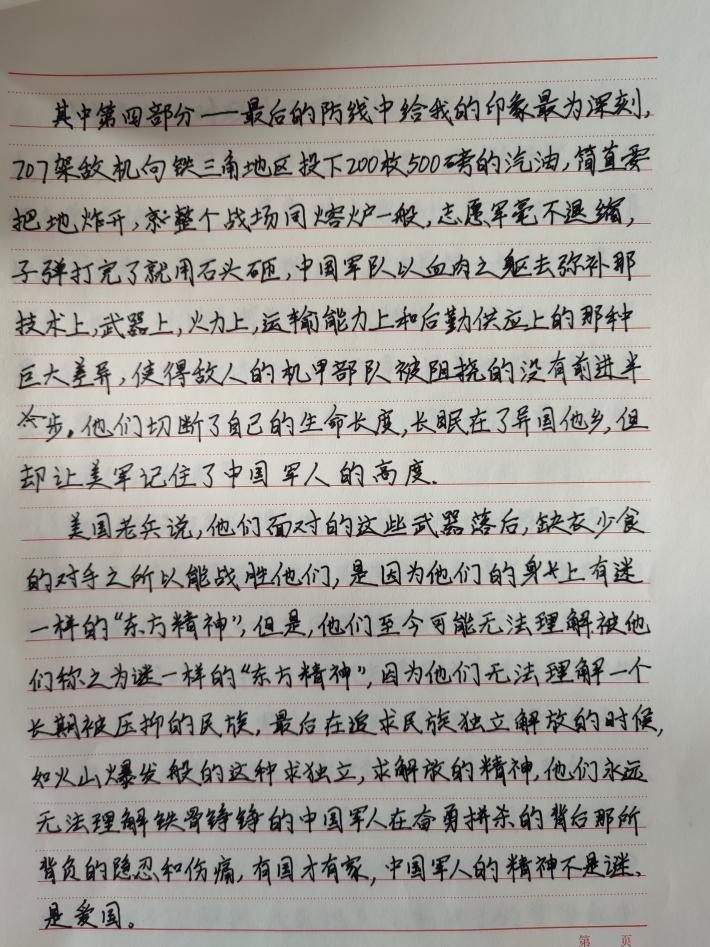 其中第四部分——最后的防线中给我的印象最为深刻,
207架敌机向铁三角地区投下200枚500磅的汽油,简直要
把地炸开,整个战场同熔炉一般,志愿军毫不退缩,
子弹打完了就用石头砸,中国军队以血肉之躯去弥补那
技术上,武器上,火力上,运输能力上和后勤供应上的那种
巨大差异,使得敌人的机甲部队被阻挠的没有前进半
步。他们切断了自己的生命长度,长眠在了异国他乡,但
却让美军记住了中国军人的高度.
美国老兵说,他们面对的这些武器落后,缺衣少食
的对手之所以能战胜他们,是因为他们的身上有迷
一样的“东方精神”,但是,他们至今可能无法理解被他
们称之为谜一样的“东方精神”,因为他们无法理解一个
长期被压抑的民族,最后在追求民族独立解放的时候,
如火山爆发般的这种求独立,求解放的精神,他们永远
无法理解铁骨铮铮的中国军人在奋勇拼杀的背后那所
背负的隐忍和伤痛,有国才有家,中国军人的精神不是谜、
是爱国。
第 页